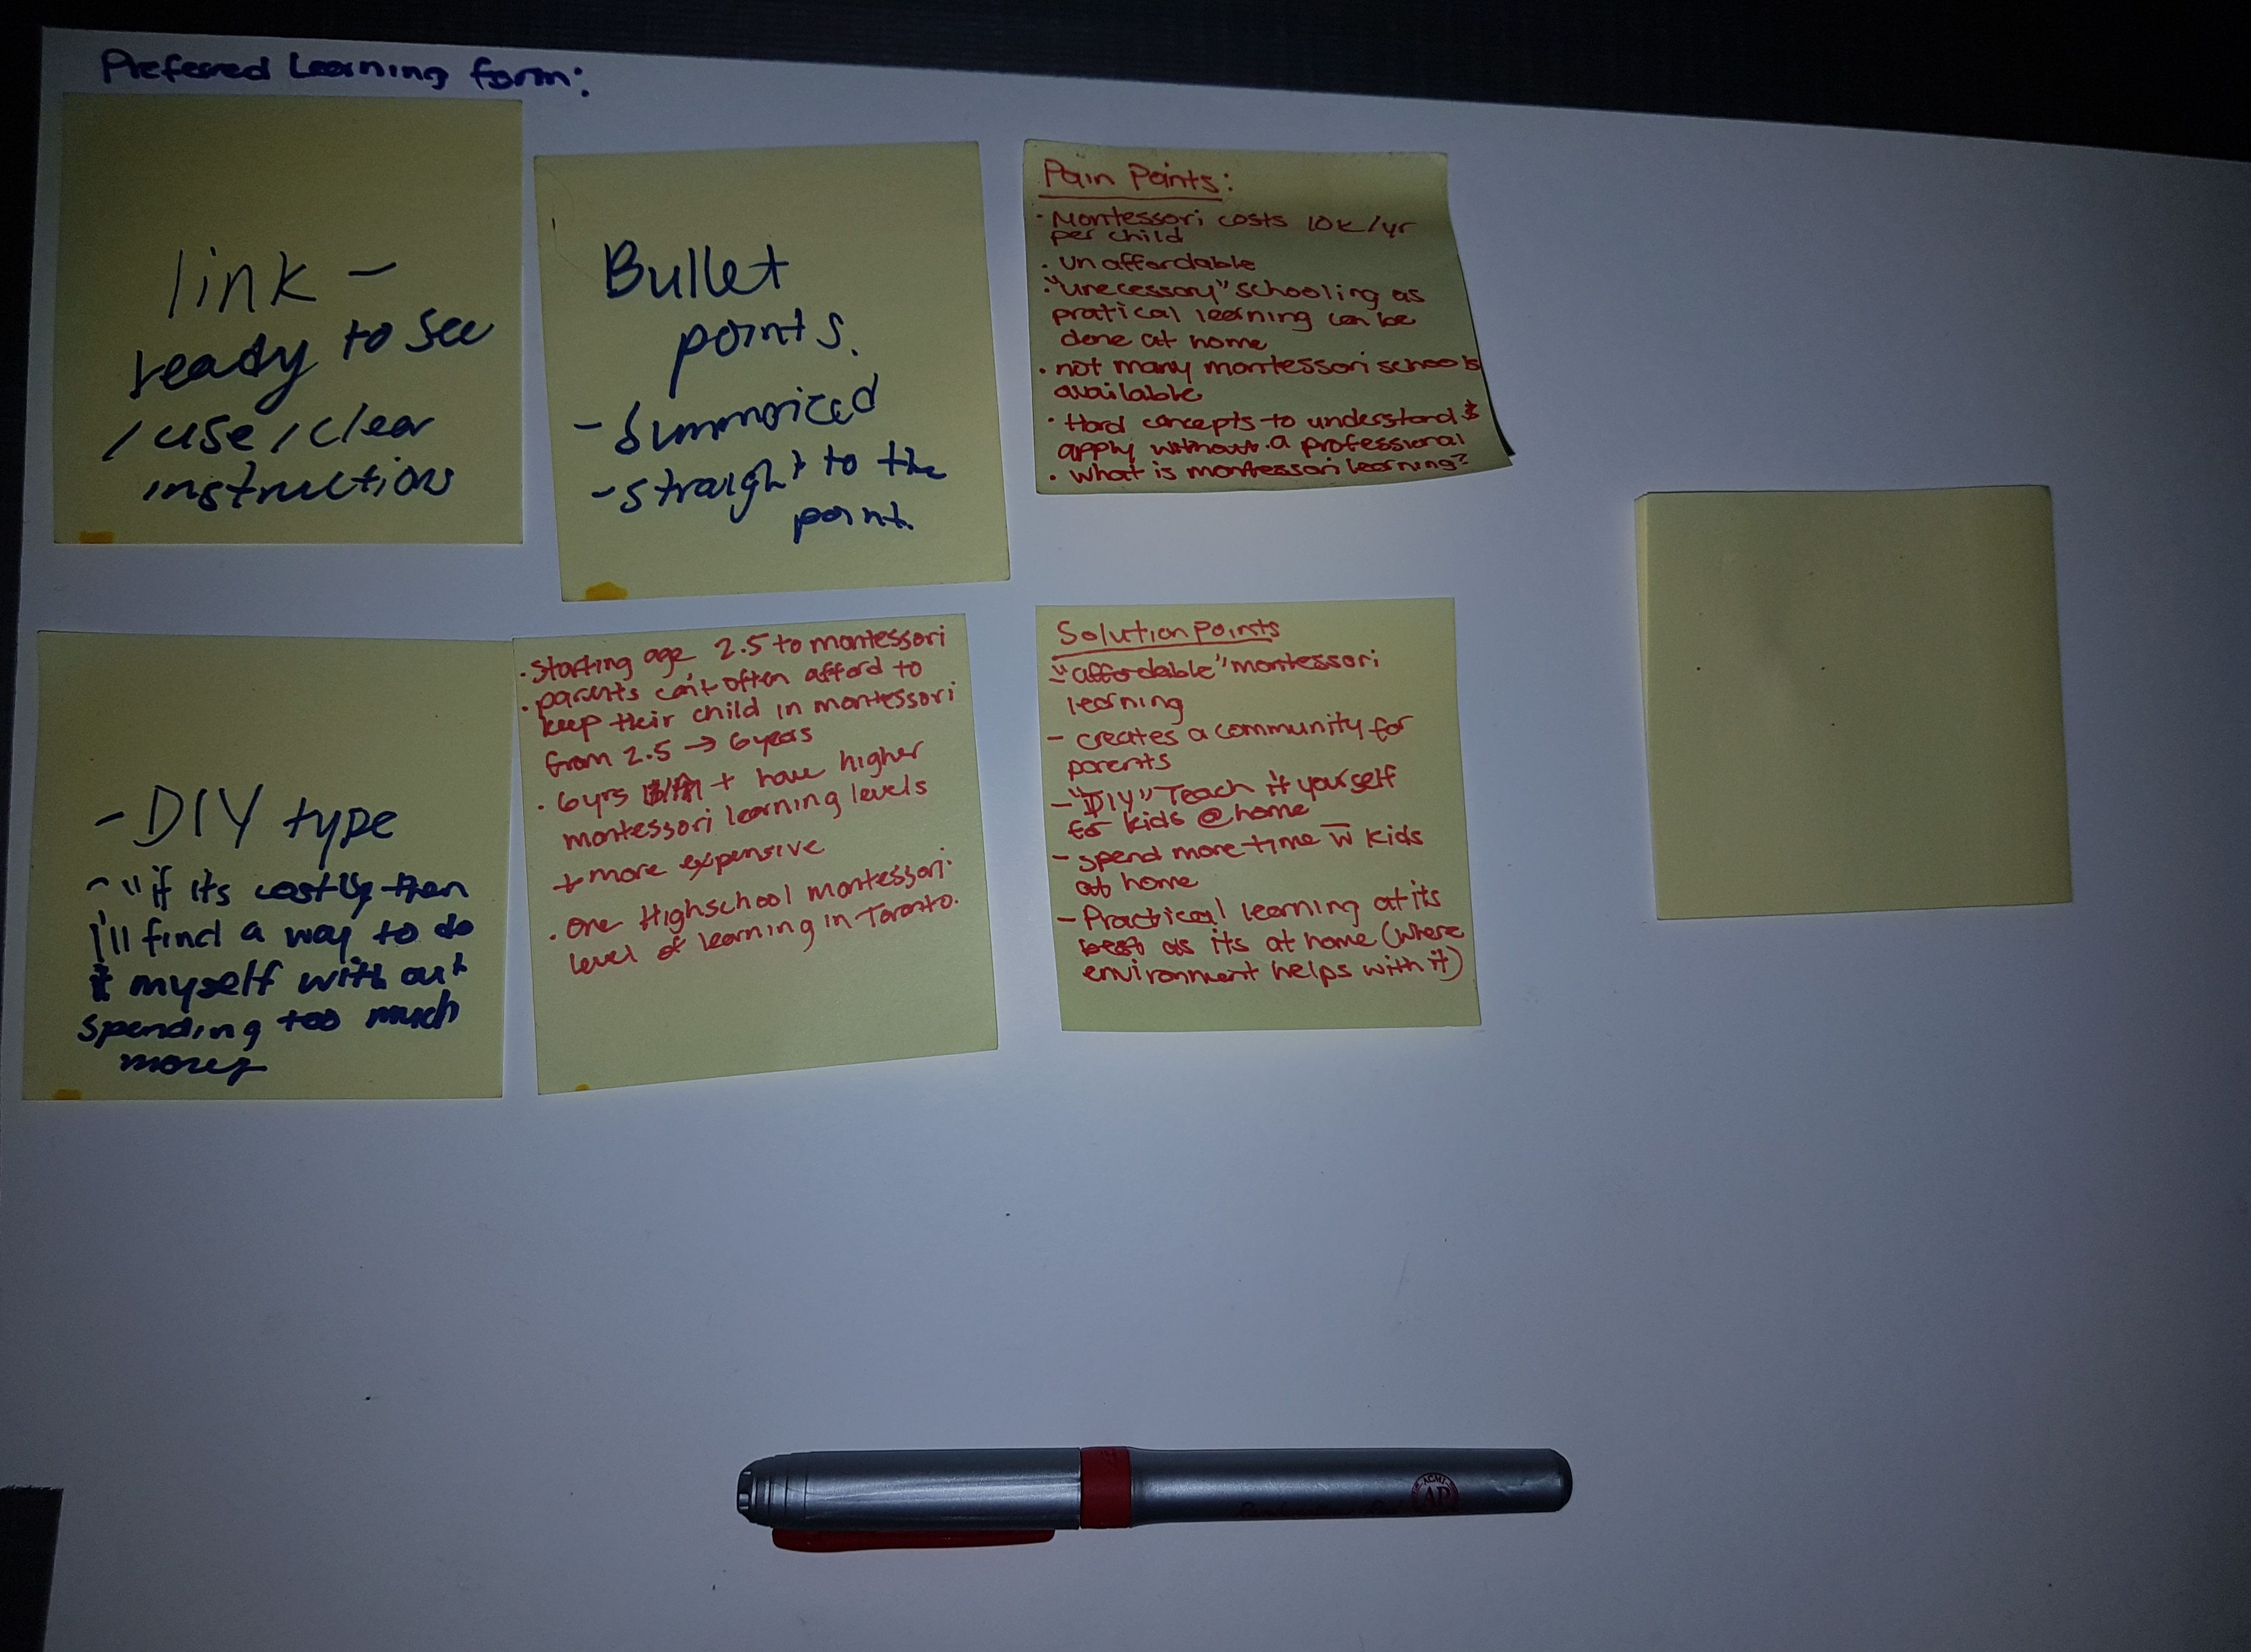 Preferred Learning form:
link -
ready to see
/ use / clear
instructions
Bullet
points.
- Summarized
- straight to the
point.
Pain Points:
· Montessori costs 10k/yr
per child
· Unaffordable
· "unecessary" schooling as
pratical learning can be
done at home
· not many montessori schools
available
· Hard concepts to understand &
apply without a professional
· What is montessori learning?
- DIY type
- "if its costly then
I'll find a way to do
it myself with out
spending too much
money
· Starting age 2.5 to montessori
· parents can't often afford to
keep their child in montessori
from 2.5 → 6 years
· 6 yrs + have higher
montessori learning levels
+ more expensive
· One Highschool montessori
level of learning in Toronto.
Solution Points
- "affordable" montessori
learning
- creates a community for
parents
- "DIY" Teach it yourself
for kids @ home
- spend more time w kids
at home
- Practical learning at its
best as its at home (where
environment helps with it)
ACMI
AP